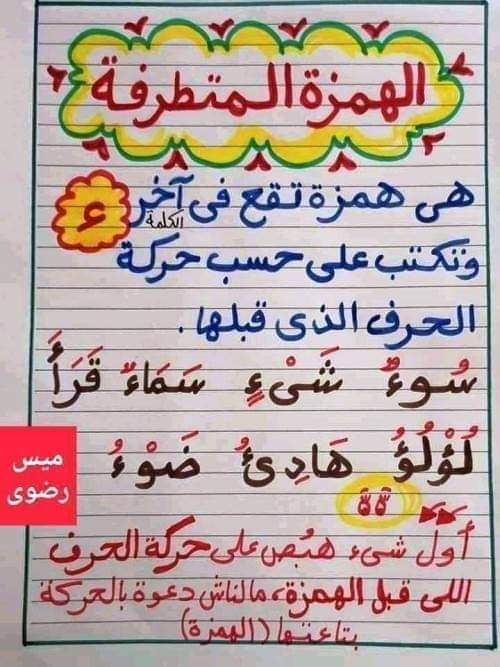 الهمزة المتطرفة
هى همزة تقع فى آخر الكلمة
ء
وتكتب على حسب حركة
الحرف الذى قبلها.
سُوءٌ شَىْءٍ سَمَاءٌ قَرَأَ
لُؤْلُؤُ هَادِئُ ضَوْءُ
ميس
رضوى
أول شىء هنبص على حركة الحرف
اللى قبل الهمزة، مالناش دعوة بالحركة
بتاعتها (الهمزة)